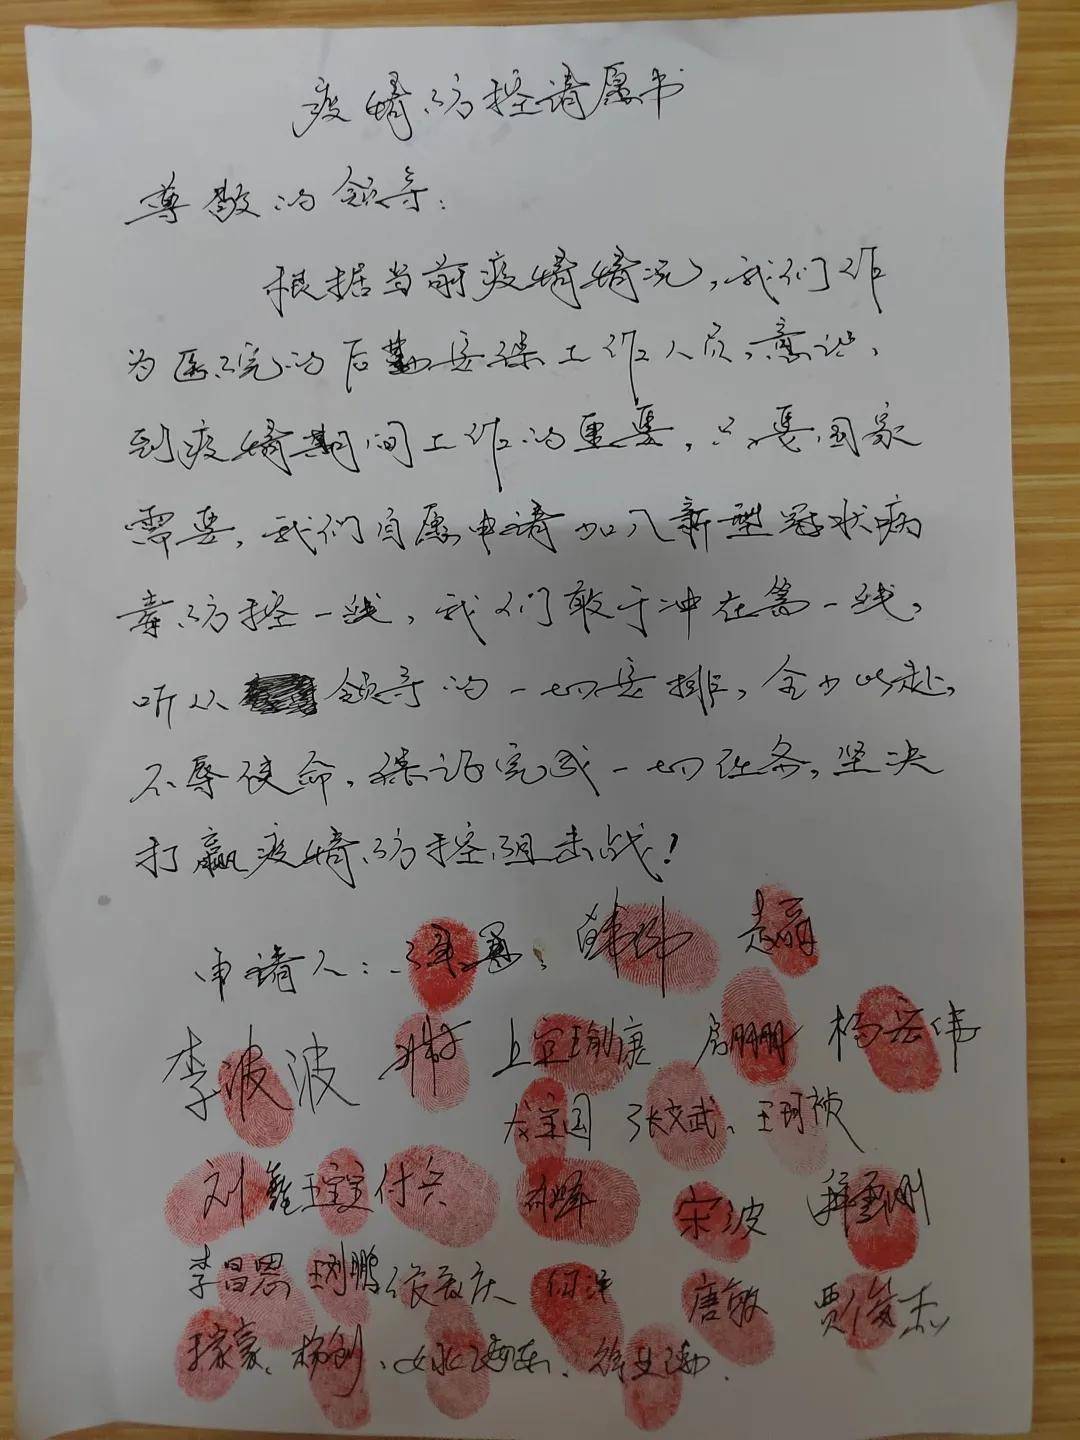 疫情防控请愿书
尊敬的领导：
根据当前疫情情况，我们作
为医院的后勤安保工作人员，意识
到疫情期间工作的重要，只要国家
需要，我们自愿申请加入新型冠状病
毒防控一线，我们敢于冲在第一线，
听从领导的一切安排，全力以赴，
不辱使命，保证完成一切任务，坚决
打赢疫情防控阻击战！
申请人：
李波波 上官瑜康 房鹏鹏 杨宏伟
龙宝国 张文武、王珂祯
刘鑫 王宝宝 付兵 宋波
李昌恩 王刘鹏 侯育庆 何洋 唐敏 贾俊杰
王家豪、杨钊、